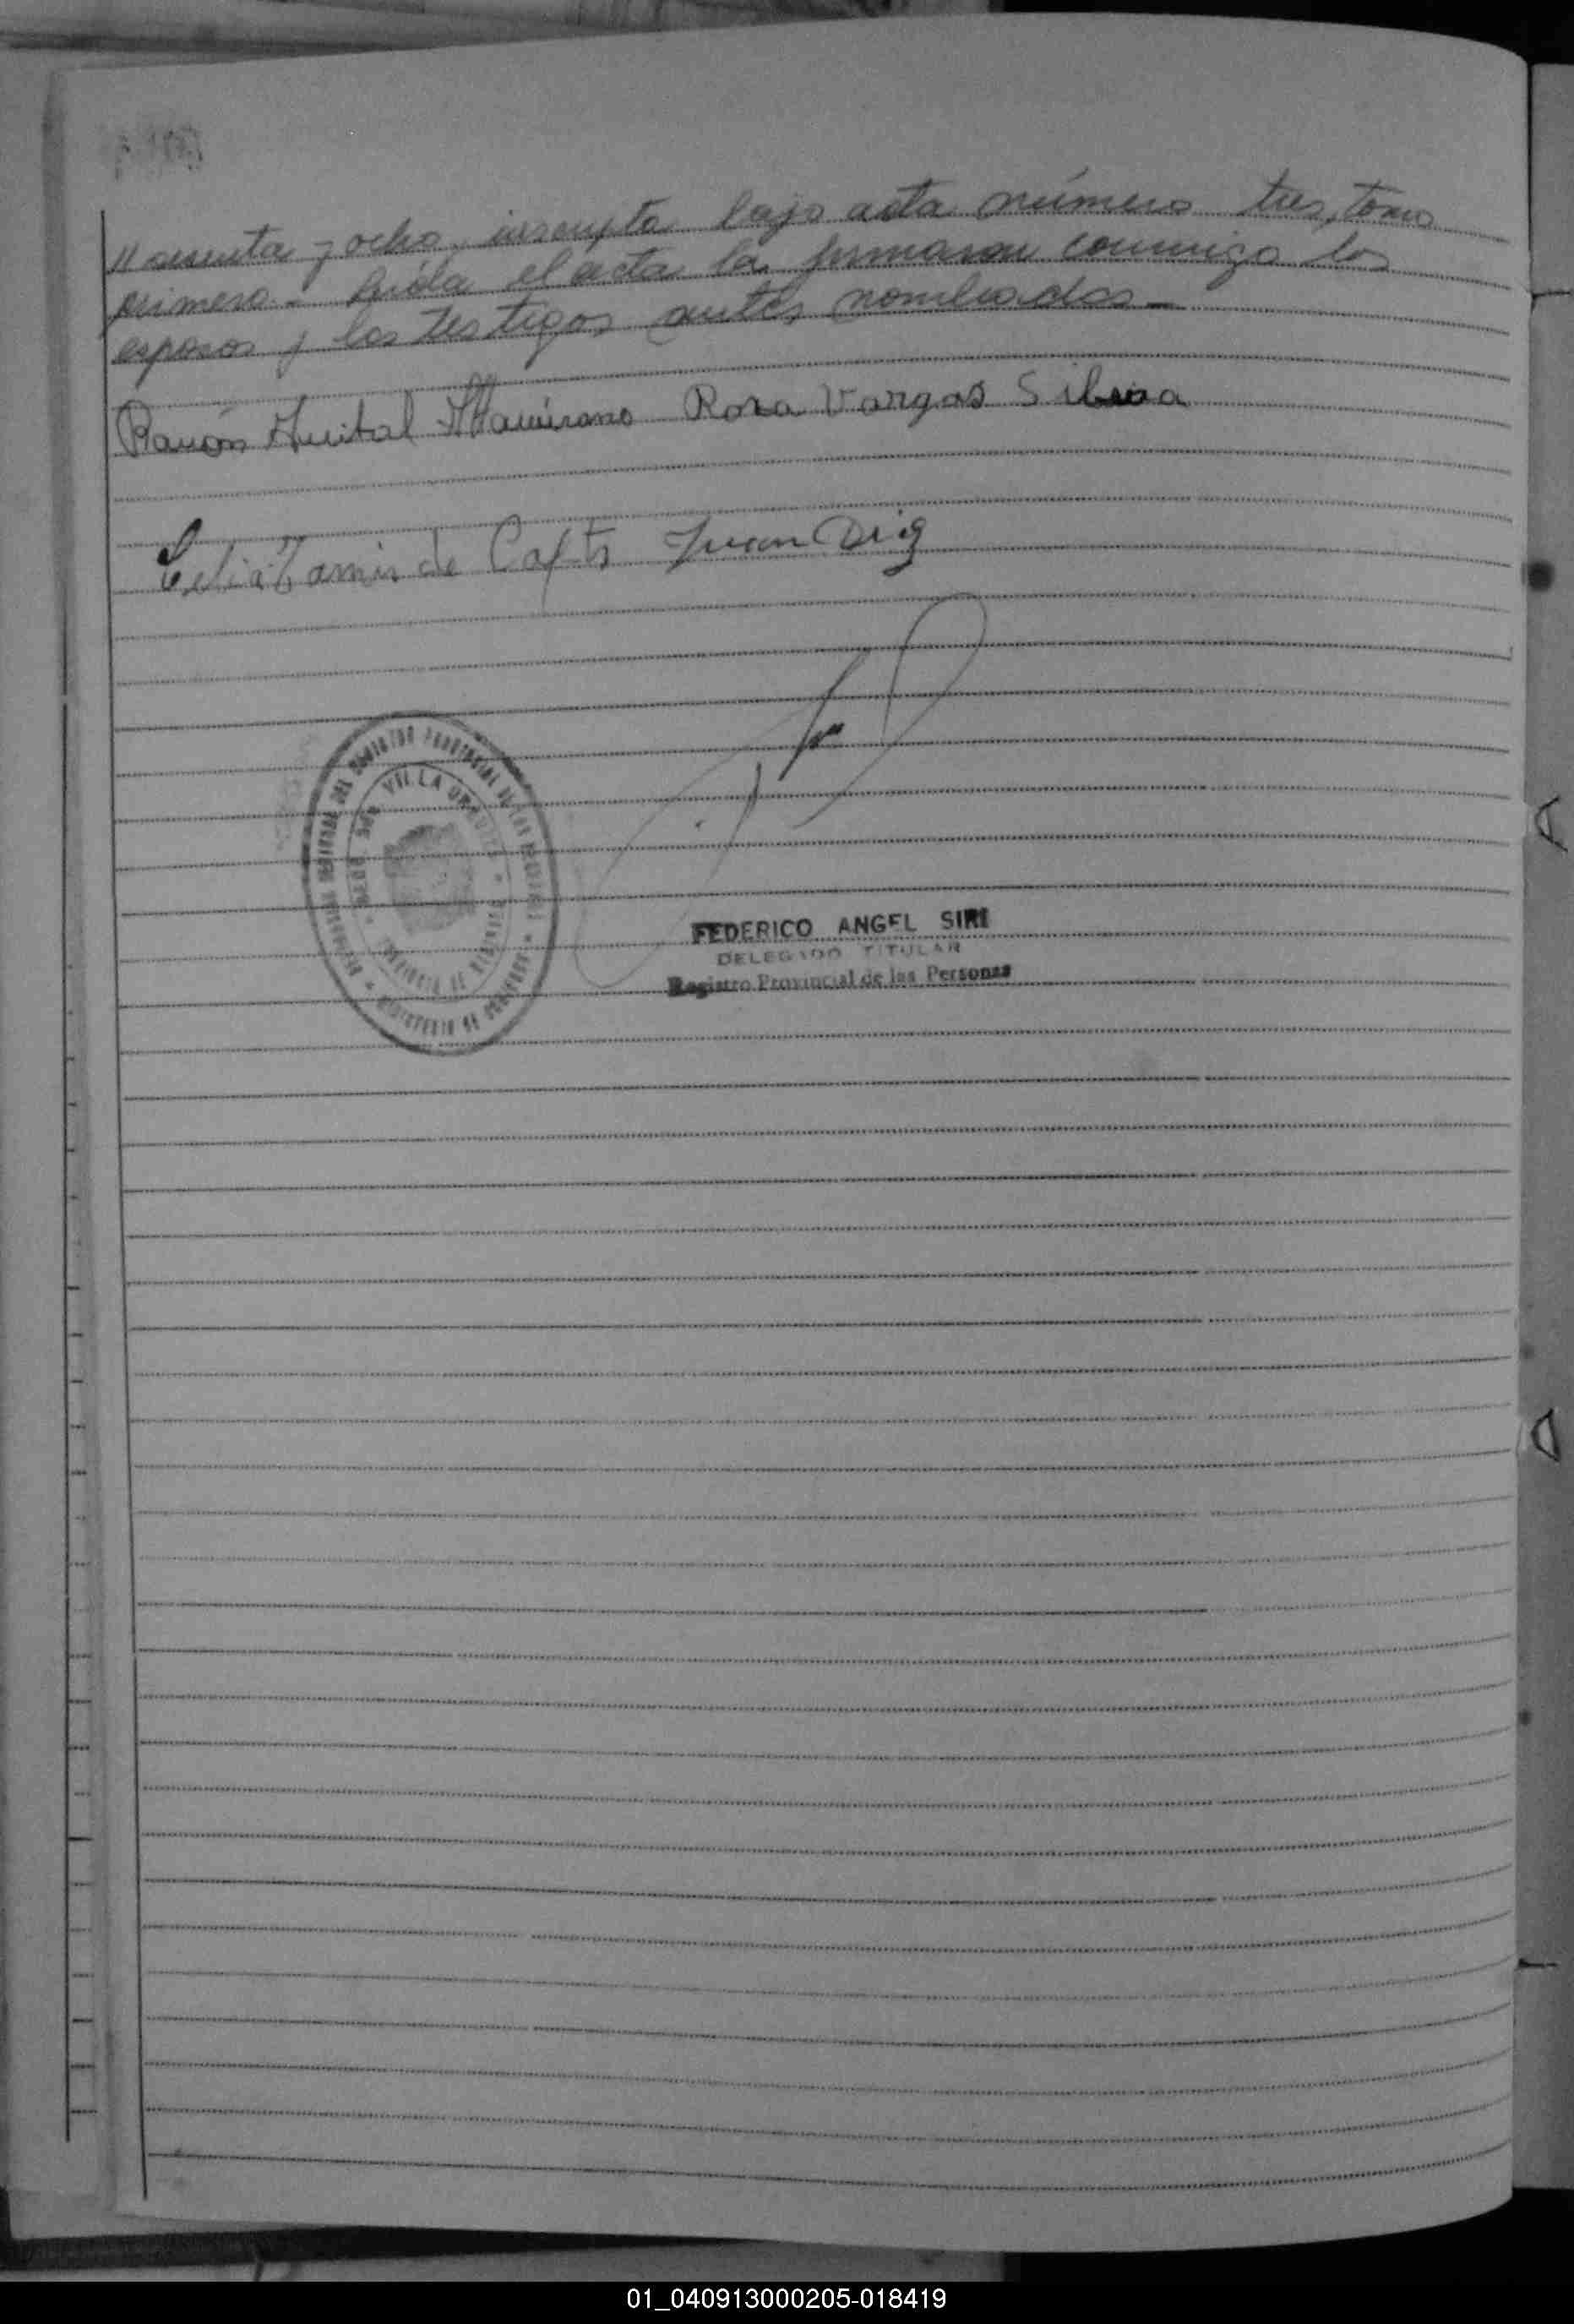 // sesenta y ocho, inscripta bajo acta número tres, tomo
primero.- Leída el acta la firmaron conmigo los
esposos y los testigos antes nombrados.-
Ramón Anibal Altamirano Rosa Vargas Silvera
Celia de Juan
VILLA
FEDERICO ANGEL SIRI
DELEGADO TITULAR
Registro Provincial de las Personas
01_040913000205-018419